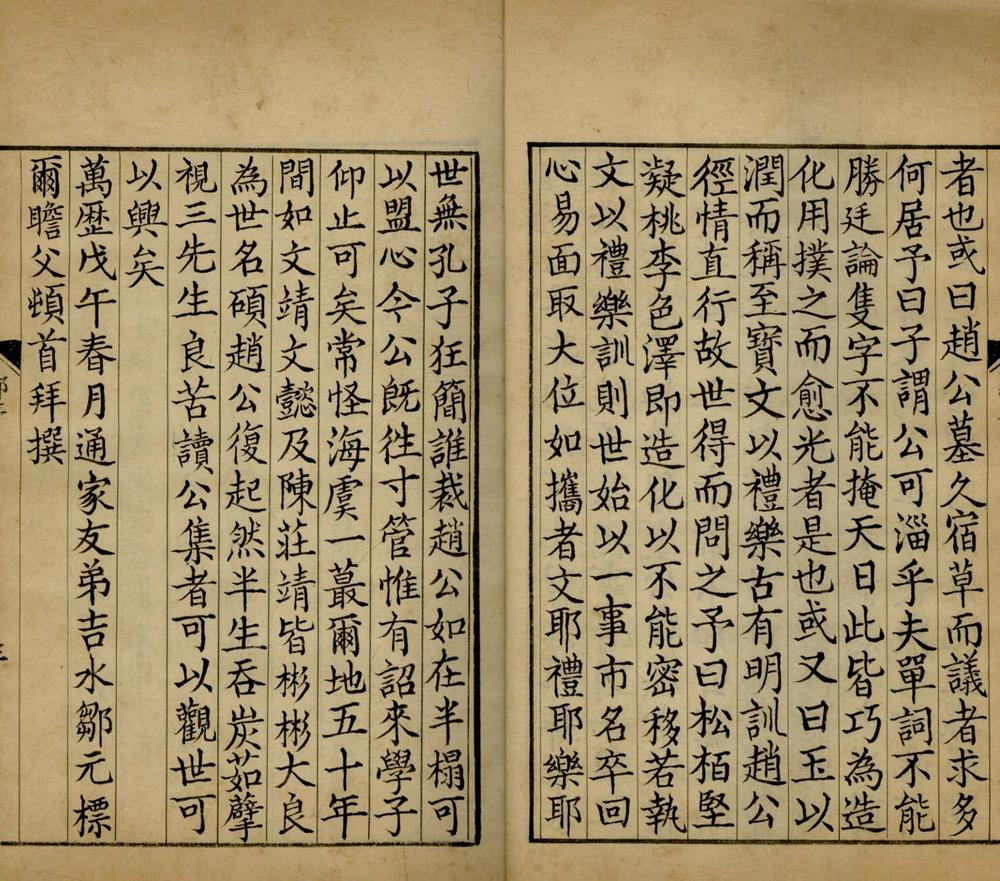 者也或曰趙公墓久宿草而議者求多
何居予曰子謂公可淄乎夫單詞不能
勝廷論隻字不能掩天日此皆巧為造
化用撲之而愈光者是也或又曰玉以
潤而稱至寶文以禮樂古有明訓趙公
徑情直行故世得而問之予曰松栢堅
凝桃李色澤即造化以不能密移若執
文以禮樂訓則世始以一事市名卒回
心易面取大位如攜者文耶禮耶樂耶
世無孔子狂簡誰裁趙公如在半榻可
以盟心今公既徃寸管惟有詔來學子
仰止可矣常怪海虞一蕞爾地五十年
間如文靖文懿及陳莊靖皆彬彬大良
為世名碩趙公復起然半生吞炭茹蘖
視三先生良苦讀公集者可以觀世可
以興矣
萬歷戊午春月通家友弟吉水鄒元標
爾瞻父頓首拜撰